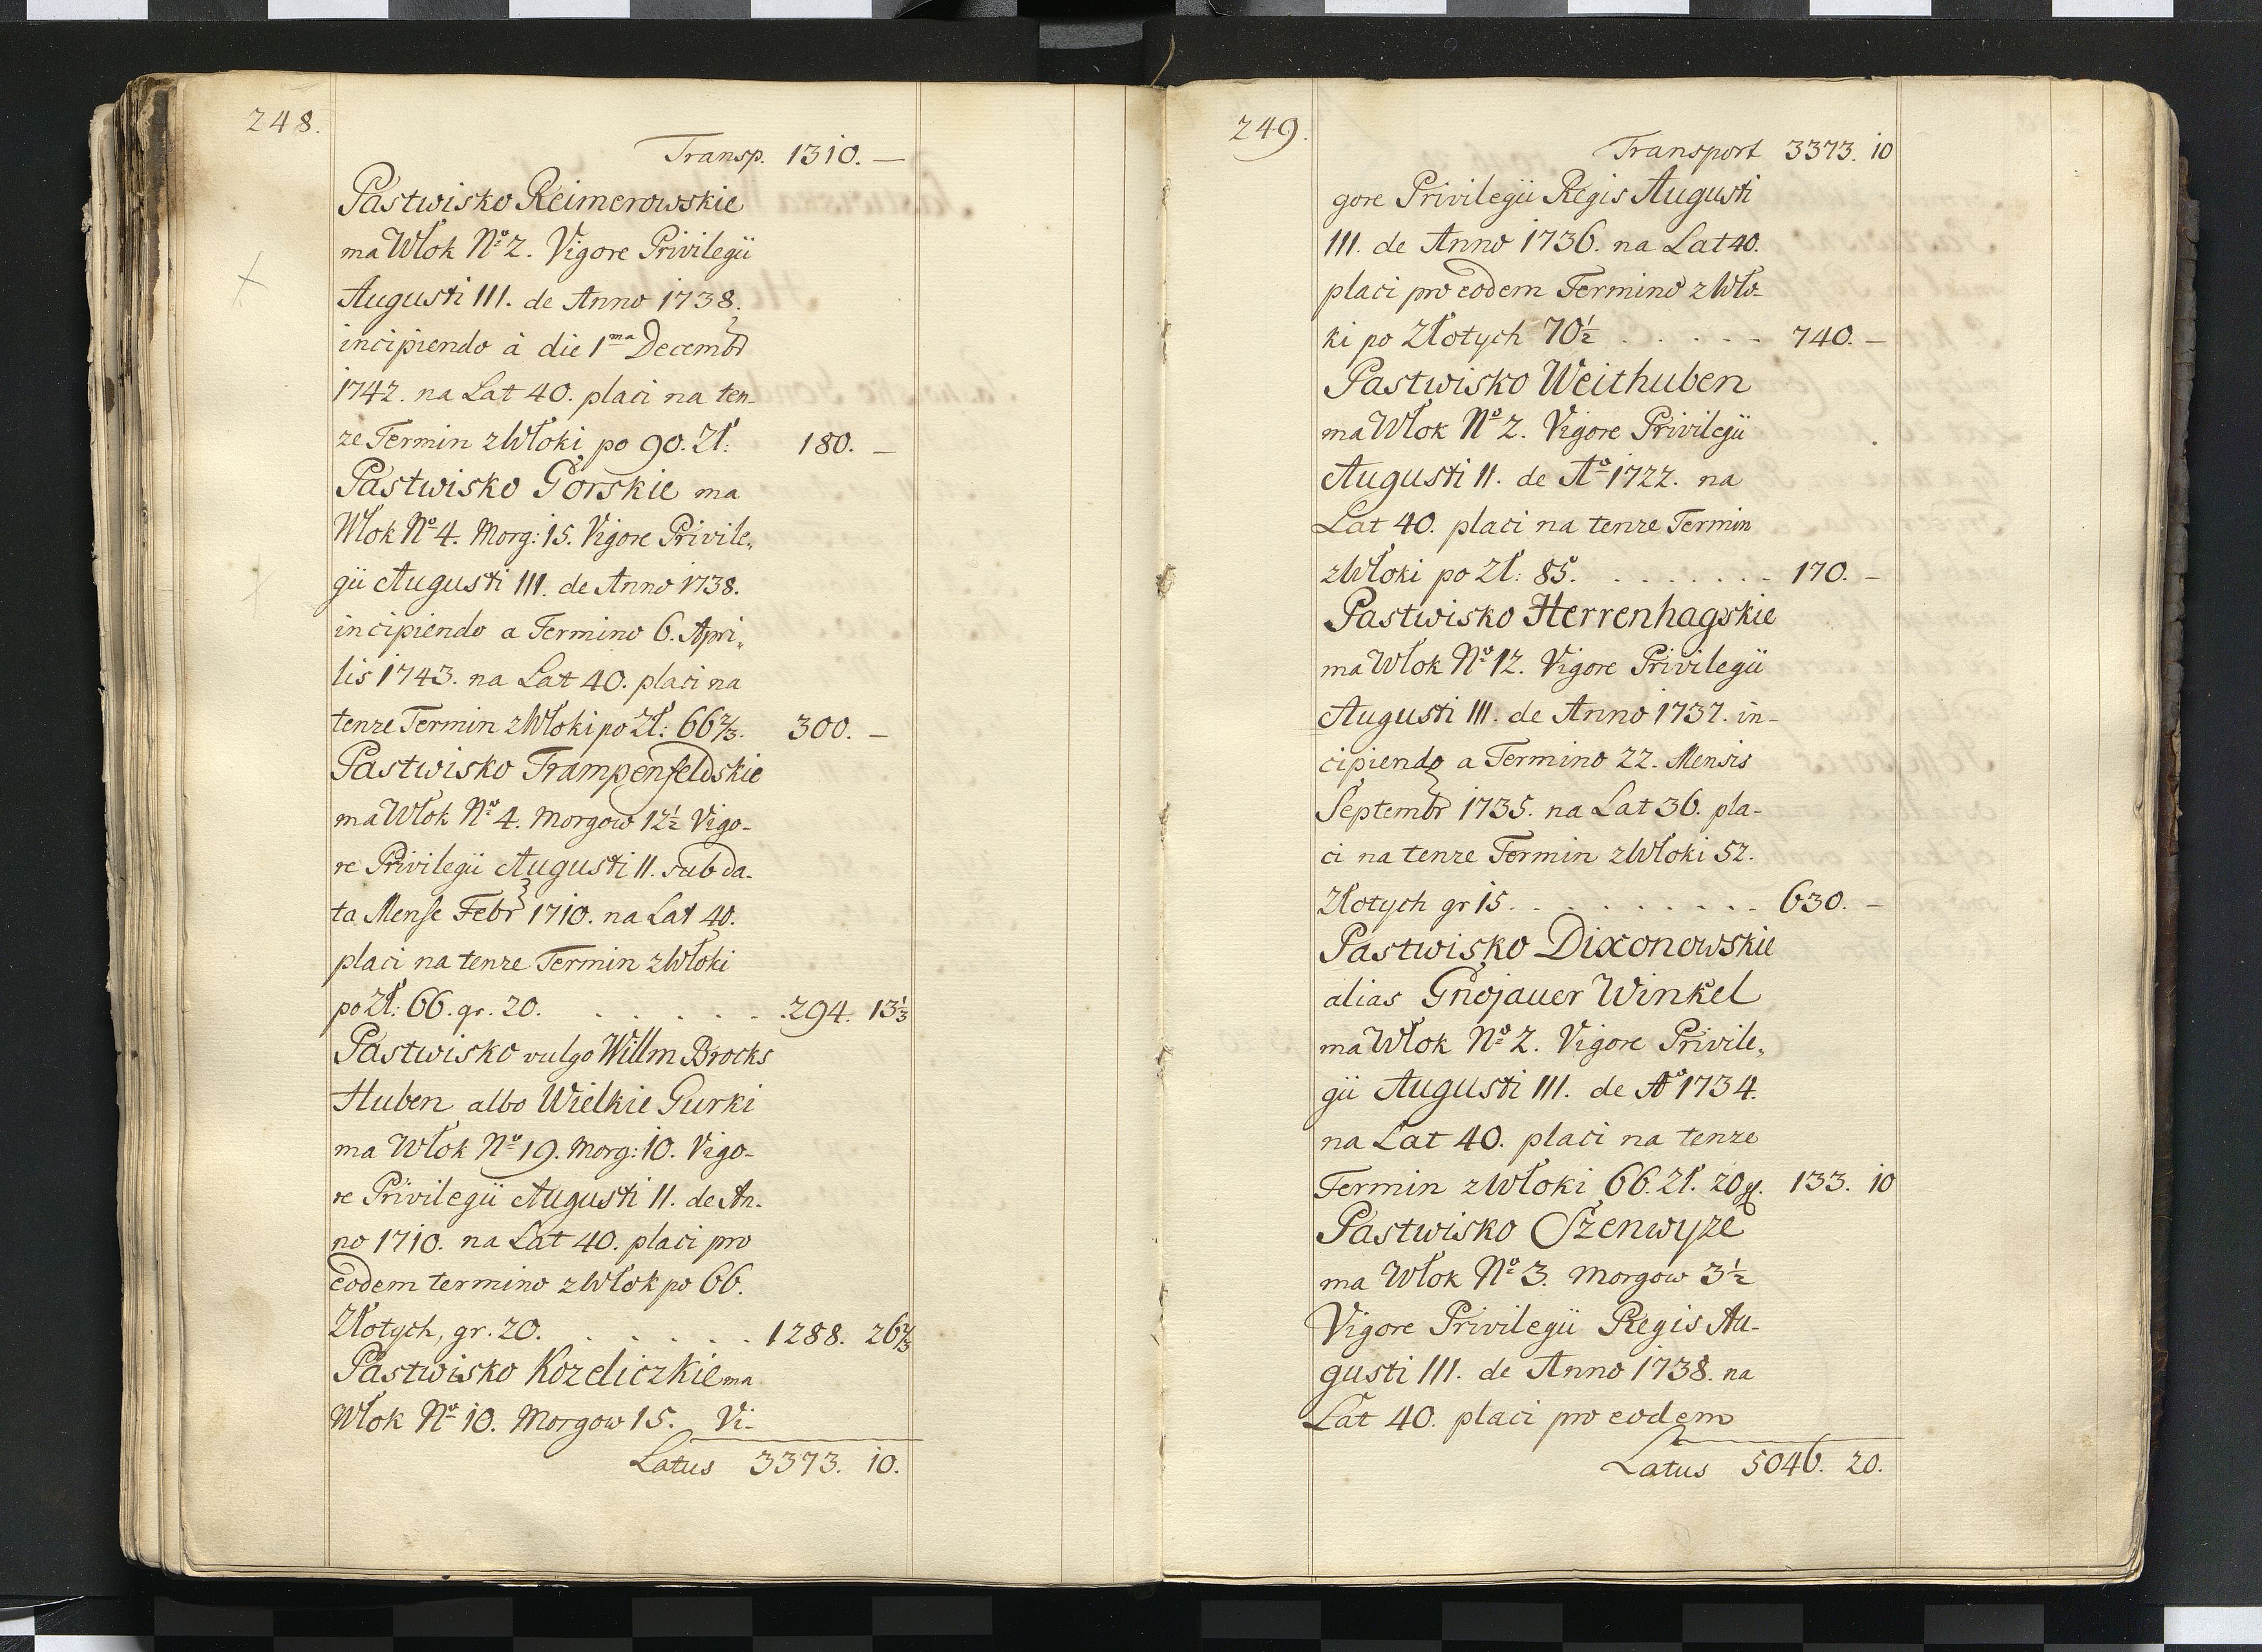 248.
Transp. 1310. —
Pastwisko Reimerowskie
ma Włok No 2. Vigore Privilegii
Augusti III. de Anno 1738.
incipiendo à die 1ma Decembr
1742. na Lat 40. placi na ten-
ze Termin z Włoki po 90. Zł: 180. —
Pastwisko Gorskie ma
Włok No 4. Morg: 15. Vigore Privile„
gii Augusti III. de Anno 1738.
incipiendo a Termino 6. Apri„
lis 1743. na Lat 40. placi na
tenze Termin z Włoki po Zł: 66 2/3. 300. —
Pastwisko Trampenfeldskie
ma Włok No 4. Morgow 12 1/2 Vigo-
re Privilegii Augusti II. sub da-
ta Mense Febr 1710. na Lat 40.
placi na tenze Termin z Włoki
po Zł: 66. gr. 20. . . . . . . 294. 13 1/3
Pastwisko vulgo Willm Brocks
Huben albo Wielkie Gurki
ma Włok No 19. Morg: 10. Vigo-
re Privilegii Augusti II. de An-
no 1710. na Lat 40. placi pro
eodem termino z Włok po 66.
Złotych, gr. 20. . . . . . . 1288. 26 2/3
Pastwisko Kozeliczkie ma
Włok No 10. Morgow 15. Vi-
Latus 3373. 10.
249.
Transport 3373. 10
gore Privilegii Regis Augusti
III. de Anno 1736. na Lat 40.
placi pro eodem Termino z Wło-
ki po Złotych 70 1/2 . . . . . 740. —
Pastwisko Weithuben
ma Włok No 2. Vigore Privilegii
Augusti II. de Ao 1722. na
Lat 40. placi na tenze Termin
z Włoki po Zł: 85. . . . . . . . 170. —
Pastwisko Herrenhagskie
ma Włok No 12. Vigore Privilegii
Augusti III. de Anno 1737. in-
cipiendo a Termino 22. Mensis
Septembr 1735. na Lat 36. pla-
ci na tenze Termin z Włoki 52.
Złotych gr 15. . . . . . . . . 630. —
Pastwisko Dixonowskie
alias Gnojauer Winkel
ma Włok No 2. Vigore Privile„
gii Augusti III. de Ao 1734.
na Lat 40. placi na tenze
Termin z Włoki 66. Zł. 20 g. 133. 10
Pastwisko Szenwyze
ma Włok No 3. Morgow 3 1/2
Vigore Privilegii Regis Au-
gusti III. de Anno 1738. na
Lat 40. placi pro eodem
Latus 5046. 20.